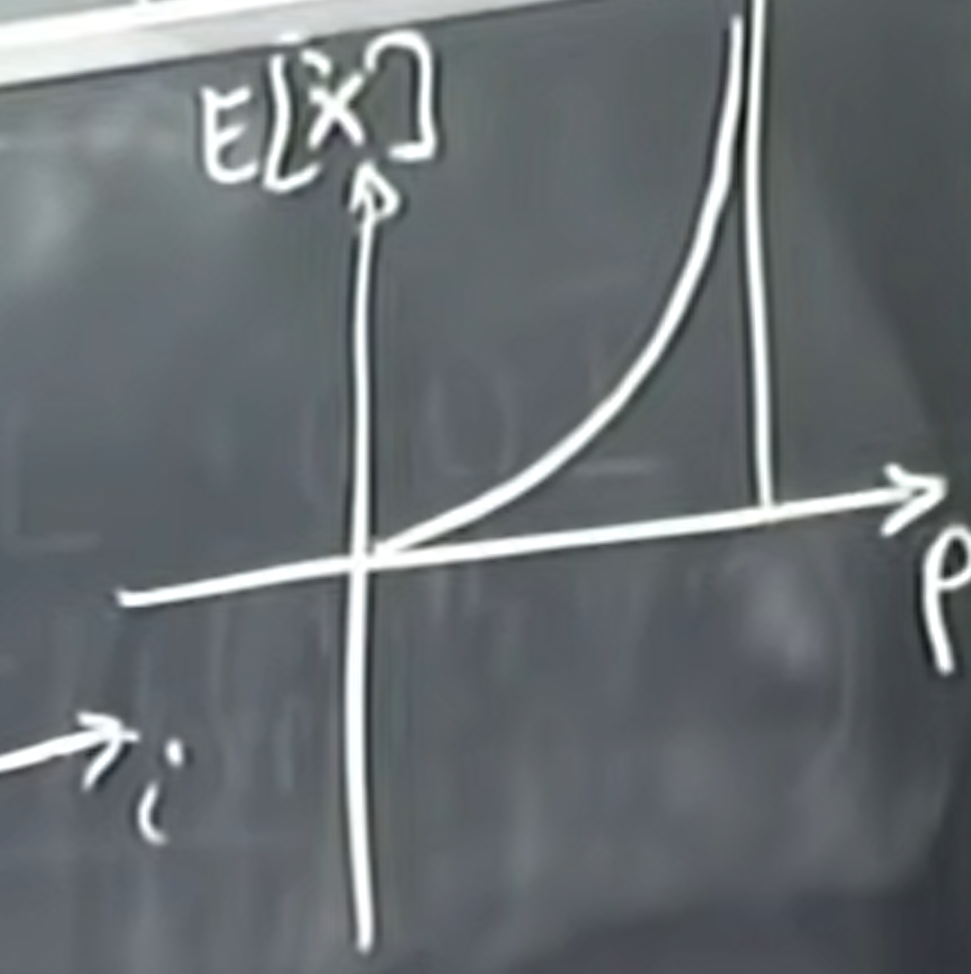 E[X]
ρ
i